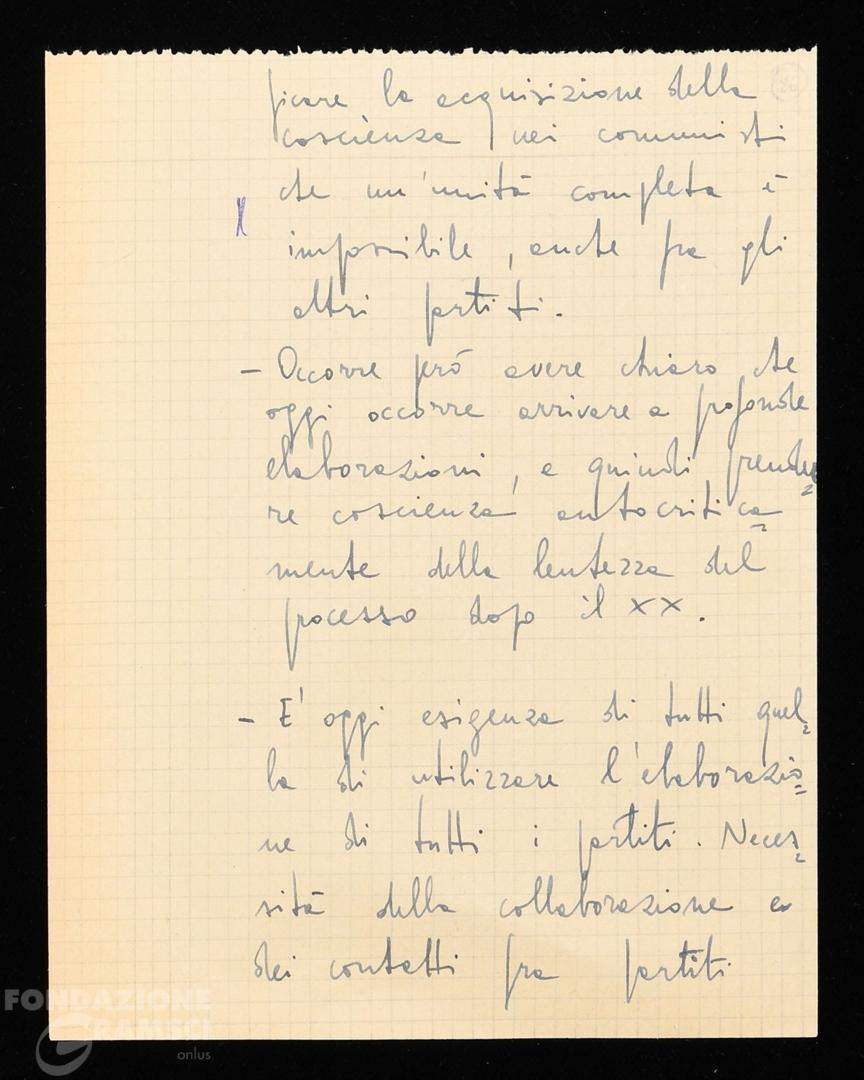 ficare la acquisizione della
coscienza nei comunisti
che un'unità completa è
impossibile, anche fra gli
altri partiti.
- Occorre però avere chiaro che
oggi occorre arrivare a profonde
elaborazioni, e quindi prende=
re coscienza autocritica=
mente della lentezza del
processo dopo il XX.
- E' oggi esigenza di tutti quel=
la di utilizzare l'elaborazio=
ne di tutti i partiti. Neces=
sità della collaborazione e
dei contatti fra partiti
FONDAZIONE
GRAMSCI
onlus